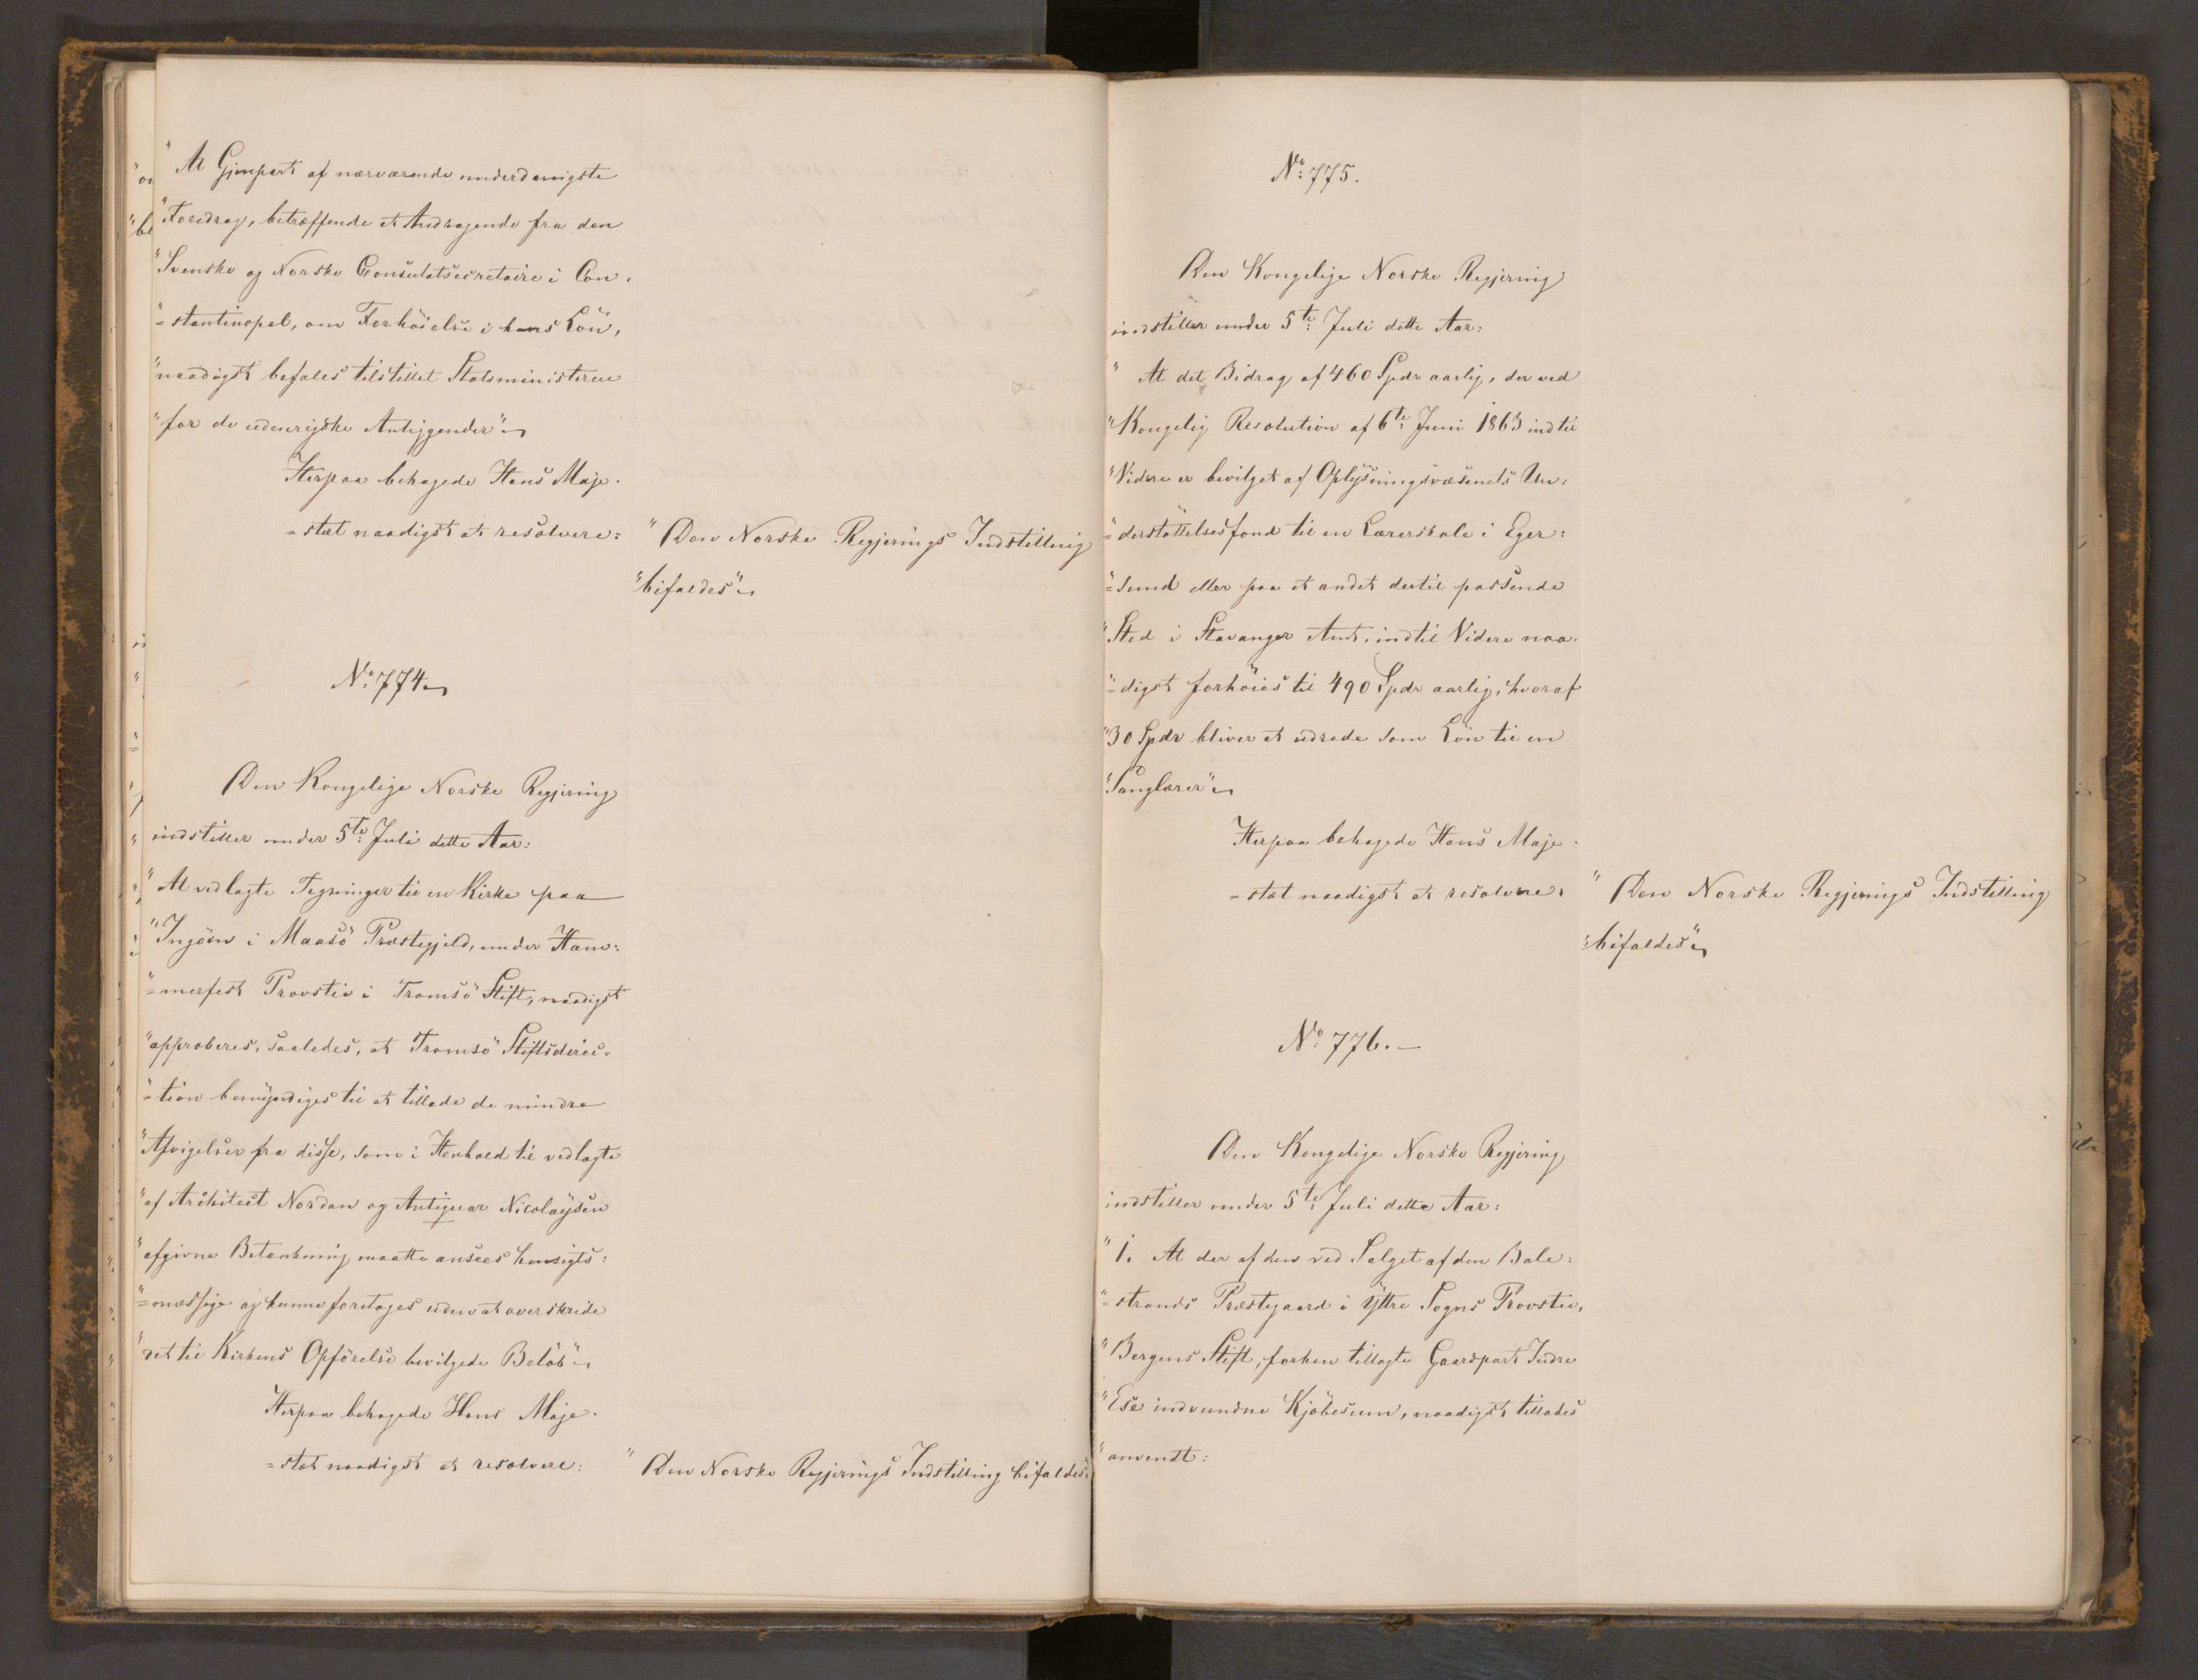 "At Gjenpart af nærværende underdanigste
"Foredrag, betræffende et Andragende fra den
"Svenske og Norske Consulatsecretaire i Con-
"=stantinopel, om Forhöielse i hans Lön,
"naadigst befales tilstillet Statsministeren
"for de udenrigske Anliggender"
Herpaa behagede Hans Maje-
=stæt naadigst at resolvere:
"Den Norske Regjerings Indstilling
"bifaldes"
No: 774
Den Kongelige Norske Regjering
indstiller under 5te: Juli dette Aar:
"At vedlagte Tegninger til en Kirke paa
"Ingöen i Maasö Præstegjeld, under Ham:
"=merfest Provstie i Tromsö Stift, naadigst
"approberes, saaledes, at Tromsö Stiftsdirec-
"=tion bemyndiges til at tillade de mindre
"Afvigelser fra disse, som i Henhold til vedlagte
"af Architect Nordan og Antiquar Nicolaysen
"afgivne Betænkning maatte ansees hensigts:
"=mæssige og kunne foretages uden at overskride
"det til Kirkens Opförelse bevilgede Belöb"
Herpaa behagede Hans Maje-
=stæt naadigst at resolvere:
"Den Norske Regjerings Indstilling bifaldes"
No: 775.
Den Kongelige Norske Regjering
indstiller under 5te: Juli dette Aar:
"At det Bidrag af 460 Spdr aarlig, der ved
"Kongelig Resolution af 6te: Juni 1863 indtil
"Videre er bevilget af Oplysningsvæsenets Un:
"=derstöttelsesfond til en Lærerskole i Eger:
"=sund eller paa et andet dertil passende
"Sted i Stavanger Amt, indtil Videre naa-
"=digst forhöies til 490 Spdr aarlig, hvoraf
"30 Spdr bliver at udrede som Lön til en
"Sanglærer"
Herpaa behagede Hans Maje-
=stæt naadigst at resolvere:
"Den Norske Regjerings Indstilling
"bifaldes"
No: 776.-
Den Kongelige Norske Regjering
indstiller under 5te: Juli dette Aar:
"1. At der af den ved Salget af den Bale:
"=strands Præstegaard i Yttre Sogns Provstie,
"Bergens Stift, forhen tillagte Gaardpart Indre
"Ese indvundne Kjöbesum, naadigst tillades
"anvendt: